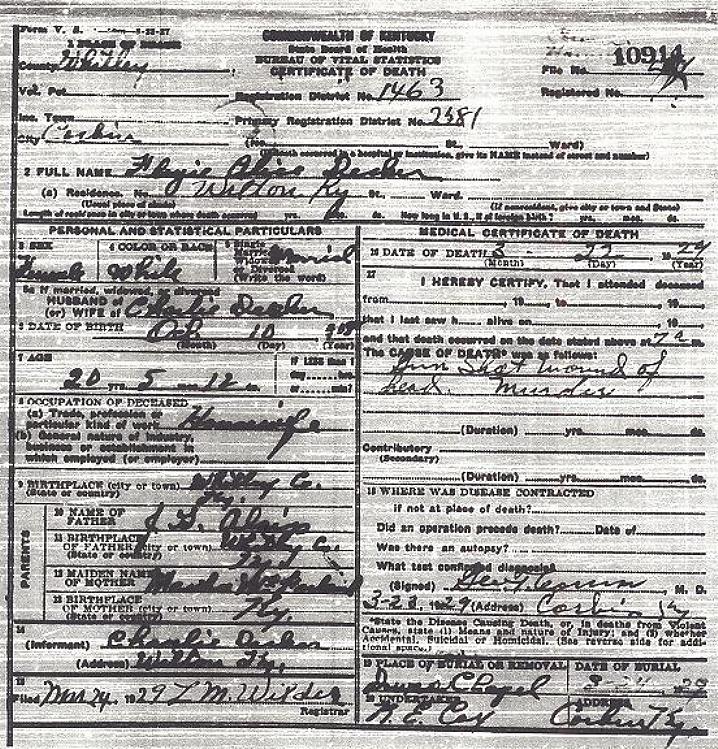 Form V. S.
COMMONWEALTH OF KENTUCKY
State Board of Health
BUREAU OF VITAL STATISTICS
CERTIFICATE OF DEATH
1 PLACE OF DEATH
County Whitley
File No. 10914
Vot. Pct.
Registration District No. 1463
Registered No.
Inc. Town
Primary Registration District No. 2381
City Corbin
(No. St., Ward)
(If death occurred in a hospital or institution, give its NAME instead of street and number)
2 FULL NAME Alice
(a) Residence. No. Wilton Ky St., Ward.
(Usual place of abode) (If nonresident, give city or town and State)
Length of residence in city or town where death occurred yrs. mos. ds. How long in U. S., if of foreign birth? yrs. mos. ds.
PERSONAL AND STATISTICAL PARTICULARS
3 SEX Female
4 COLOR OR RACE White
5 Single Married Widowed or Divorced (Write the word) Married
5a If married, widowed, or divorced
HUSBAND of
(or) WIFE of Charlie
6 DATE OF BIRTH Oct 10 1908
(Month) (Day) (Year)
7 AGE
20 yrs. 5 mos. 12 ds.
IF LESS than 1 day
or min?
8 OCCUPATION OF DECEASED
(a) Trade, profession or particular kind of work Housewife
(b) General nature of industry, business or establishment in which employed (or employer)
9 BIRTHPLACE (city or town) Whitley Co.
(State or country) Ky.
PARENTS
10 NAME OF FATHER
11 BIRTHPLACE OF FATHER (city or town) Whitley Co.
(State or country) Ky
12 MAIDEN NAME OF MOTHER Martha
13 BIRTHPLACE OF MOTHER (city or town) Ky.
(State or country)
14
(Informant) Charlie
(Address) Wilton Ky.
15
Filed Mar 24, 1929 L. M. Wilder
Registrar
MEDICAL CERTIFICATE OF DEATH
16 DATE OF DEATH 3 - 22, 1929
(Month) (Day) (Year)
17
I HEREBY CERTIFY, That I attended deceased
from , 19 , to , 19 ,
that I last saw h alive on , 19 ,
and that death occurred on the date stated above at 7 a m.
The CAUSE OF DEATH* was as follows:
Gun Shot wound of
head. Murder
(Duration) yrs. mos. ds.
Contributory
(Secondary)
(Duration) yrs. mos. ds.
18 WHERE WAS DISEASE CONTRACTED
if not at place of death?
Did an operation precede death? Date of
Was there an autopsy?
What test confirmed diagnosis?
(Signed) , M. D.
3-23, 1929 (Address) Corbin Ky
*State the Disease Causing Death, or, in deaths from Violent
Causes, state (1) Means and nature of Injury; and (2) whether
Accidental, Suicidal or Homicidal. (See reverse side for addi-
tional space.)
19 PLACE OF BURIAL OR REMOVAL
Chapel
DATE OF BURIAL
3-24 29
20 UNDERTAKER
N. E. Cox
ADDRESS
Corbin Ky.